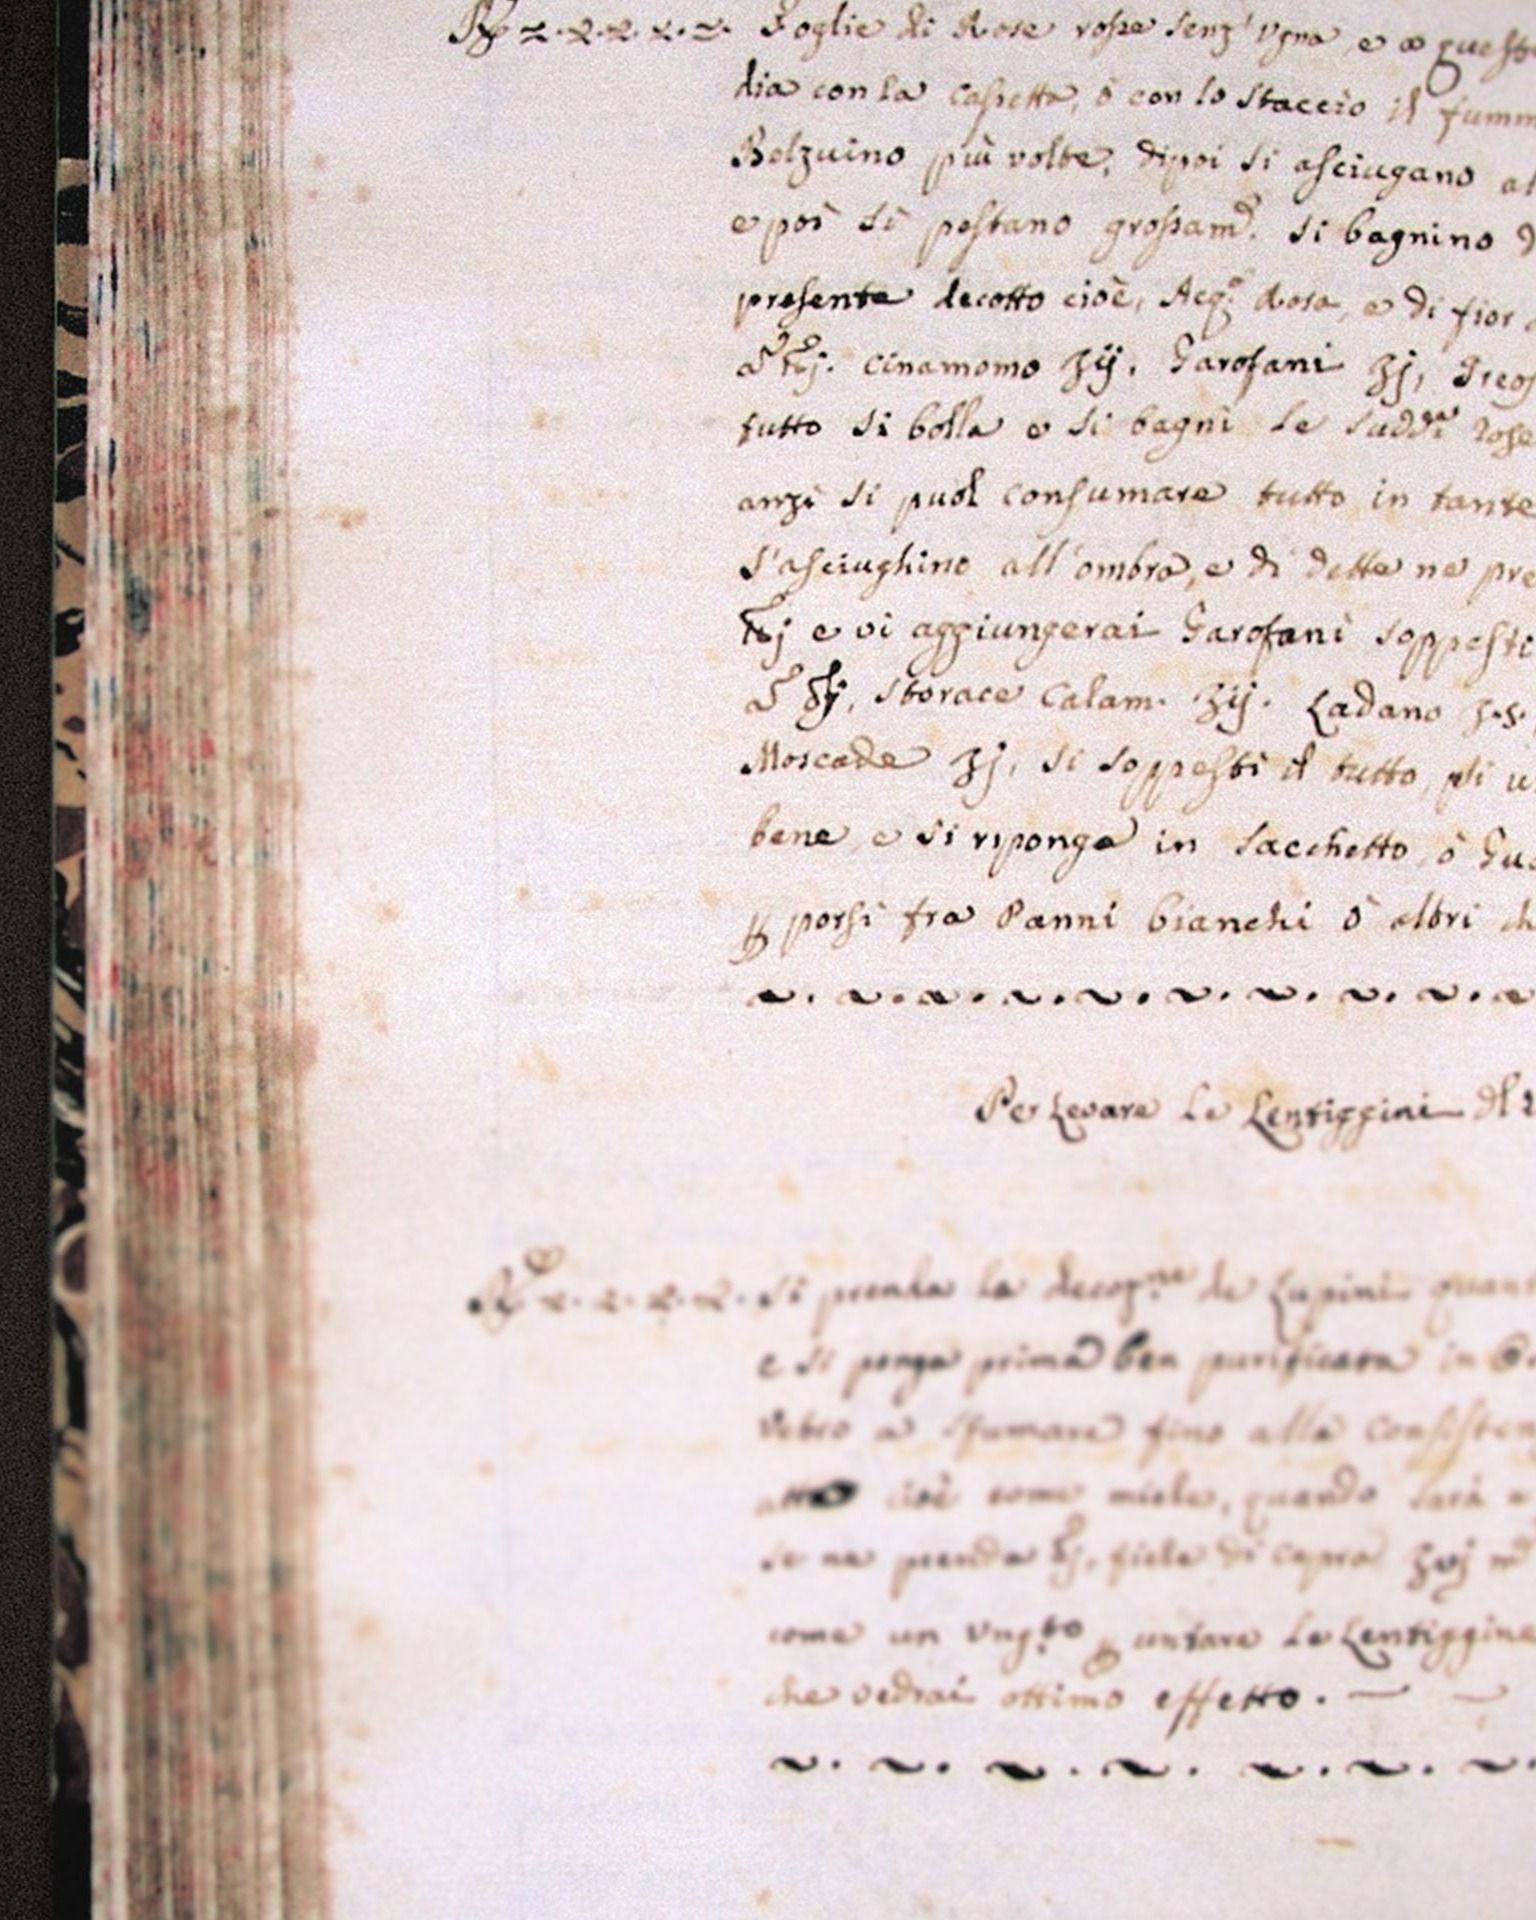 Foglie di Rose rosse senz' Vgna, e a queste
dia con la Cassetta, ò con lo staccio il fumm
Belzuino più volte, dipoi si asciugano al
e poi si pestano grossam.e si bagnino
presente decotto cioè, Acq.a Rosa, e di fior
ã ℔j. Cinamomo ʒij, Garofani ʒj,
tutto si bolla e si bagni le sudd.e Rose
anzi si puol consumare tutto in tante
s'asciughino all'ombra, e di dette ne pre
℔j e vi aggiungerai Garofani soppesti
ã ℥j, storace Calam. ʒij. Ladano ʒ.s.
Moscade ʒj, si soppesti il tutto, si u
bene e si riponga in sacchetto, ò Gua
porsi fra Panni bianchi ò altri
Per Levare le Lentiggini
Si prenda la decoz.ne de Lupini quant
e si ponga prima ben purificata in
Vetro a sfumare fino alla Consisten
cioè come miele, quando sarà
se ne prenda ℔j, fiele di capra ʒvj
come un Vng.to untare le Lentiggine
che vedrai ottimo effetto.